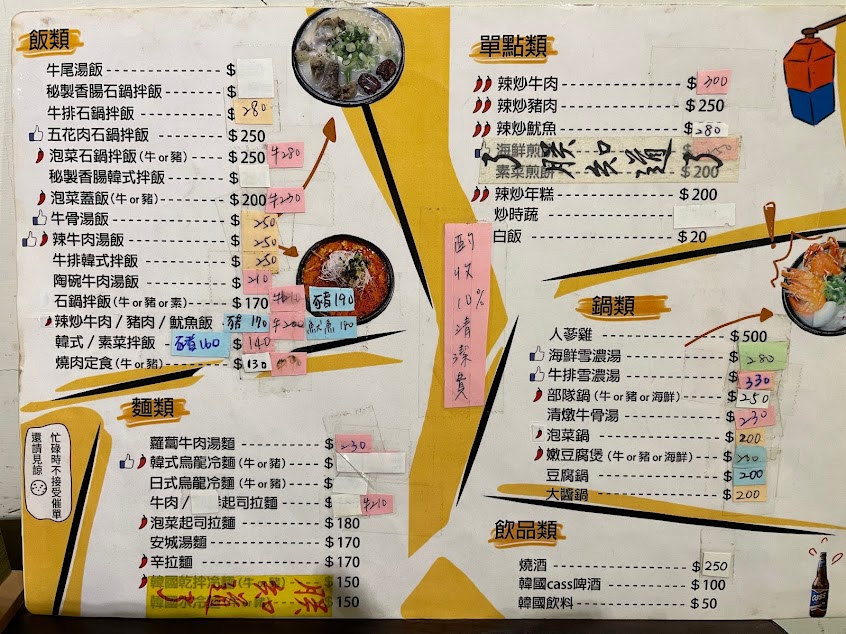 飯類
牛尾湯飯 $
秘製香腸石鍋拌飯 $
牛排石鍋拌飯 $ 280
五花肉石鍋拌飯 $250
泡菜石鍋拌飯(牛or豬) $250 牛280
秘製香腸韓式拌飯 $
泡菜蓋飯(牛or豬) $200 牛230
牛骨湯飯 $ 250
辣牛肉湯飯 $ 250
牛排韓式拌飯 $ 250
陶碗牛肉湯飯 $ 210
石鍋拌飯(牛or豬or素) $170 豬190
辣炒牛肉/豬肉/魷魚飯 豬170 魷魚180
韓式/素菜拌飯 豬160 $ 140
燒肉定食(牛or豬) $ 130
麵類
蘿蔔牛肉湯麵 $ 230
韓式烏龍冷麵(牛or豬) $
日式烏龍冷麵(牛or豬) $
牛肉/ 起司拉麵 $ 牛210
泡菜起司拉麵 $180
安城湯麵 $170
辛拉麵 $170
韓國乾拌冷麵(牛or豬) $150
韓國水冷 $150
朕知道了
忙碌時不接受催單
還請見諒
酌收10%清潔費
單點類
辣炒牛肉 $ 300
辣炒豬肉 $250
辣炒魷魚 $ 280
海鮮煎餅 $
素菜煎餅 $200
朕知道了
辣炒年糕 $200
炒時蔬
白飯 $20
鍋類
人蔘雞 $500
海鮮雪濃湯 $ 280
牛排雪濃湯 $ 330
部隊鍋(牛or豬or海鮮) $ 250
清燉牛骨湯 $ 230
泡菜鍋 $ 200
嫩豆腐煲(牛or豬or海鮮) $
豆腐鍋 $ 200
大醬鍋 $ 200
飲品類
燒酒 $ 250
韓國cass啤酒 $100
韓國飲料 $50
cass